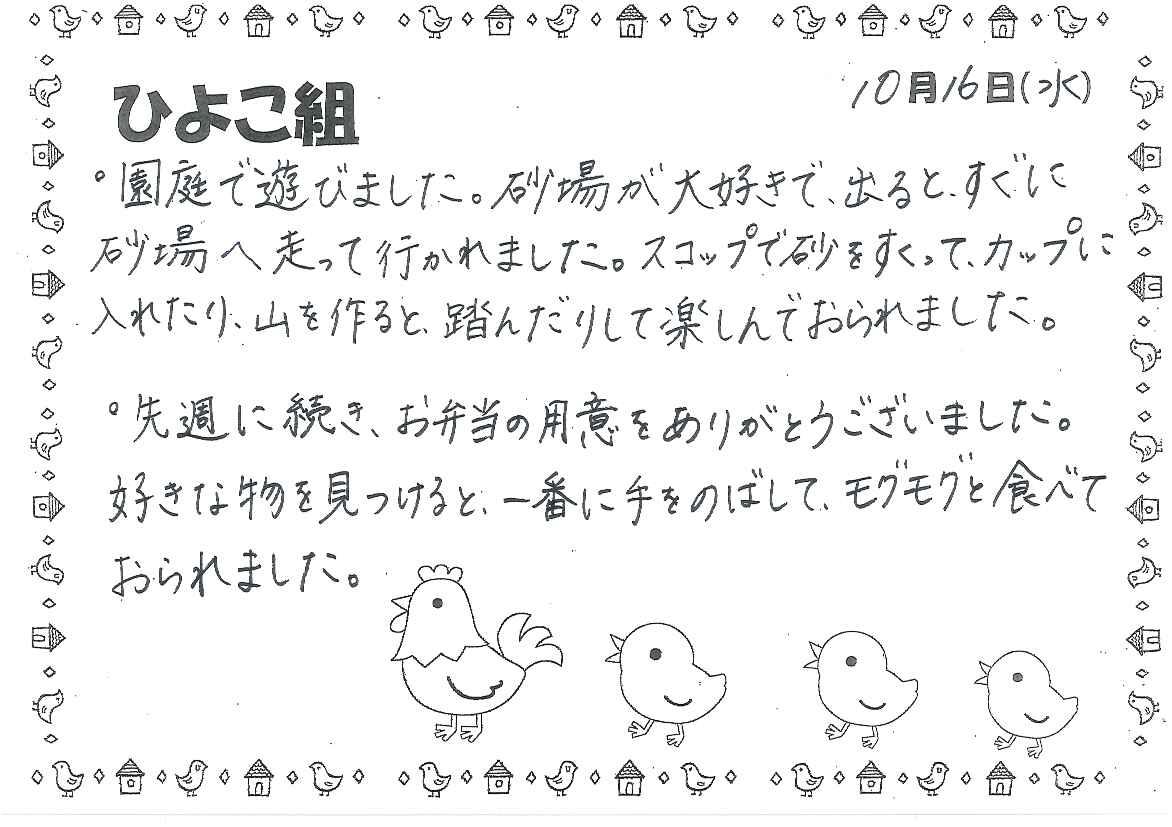 ひよこ組
10月16日(水)
°園庭で遊びました。砂場が大好きで、出ると、すぐに
砂場へ走って行かれました。スコップで砂をすくって、カップに
入れたり、山を作ると、踏んだりして楽しんでおられました。
°先週に続き、お弁当の用意をありがとうございました。
好きな物を見つけると、一番に手をのばして、モグモグと食べて
おられました。